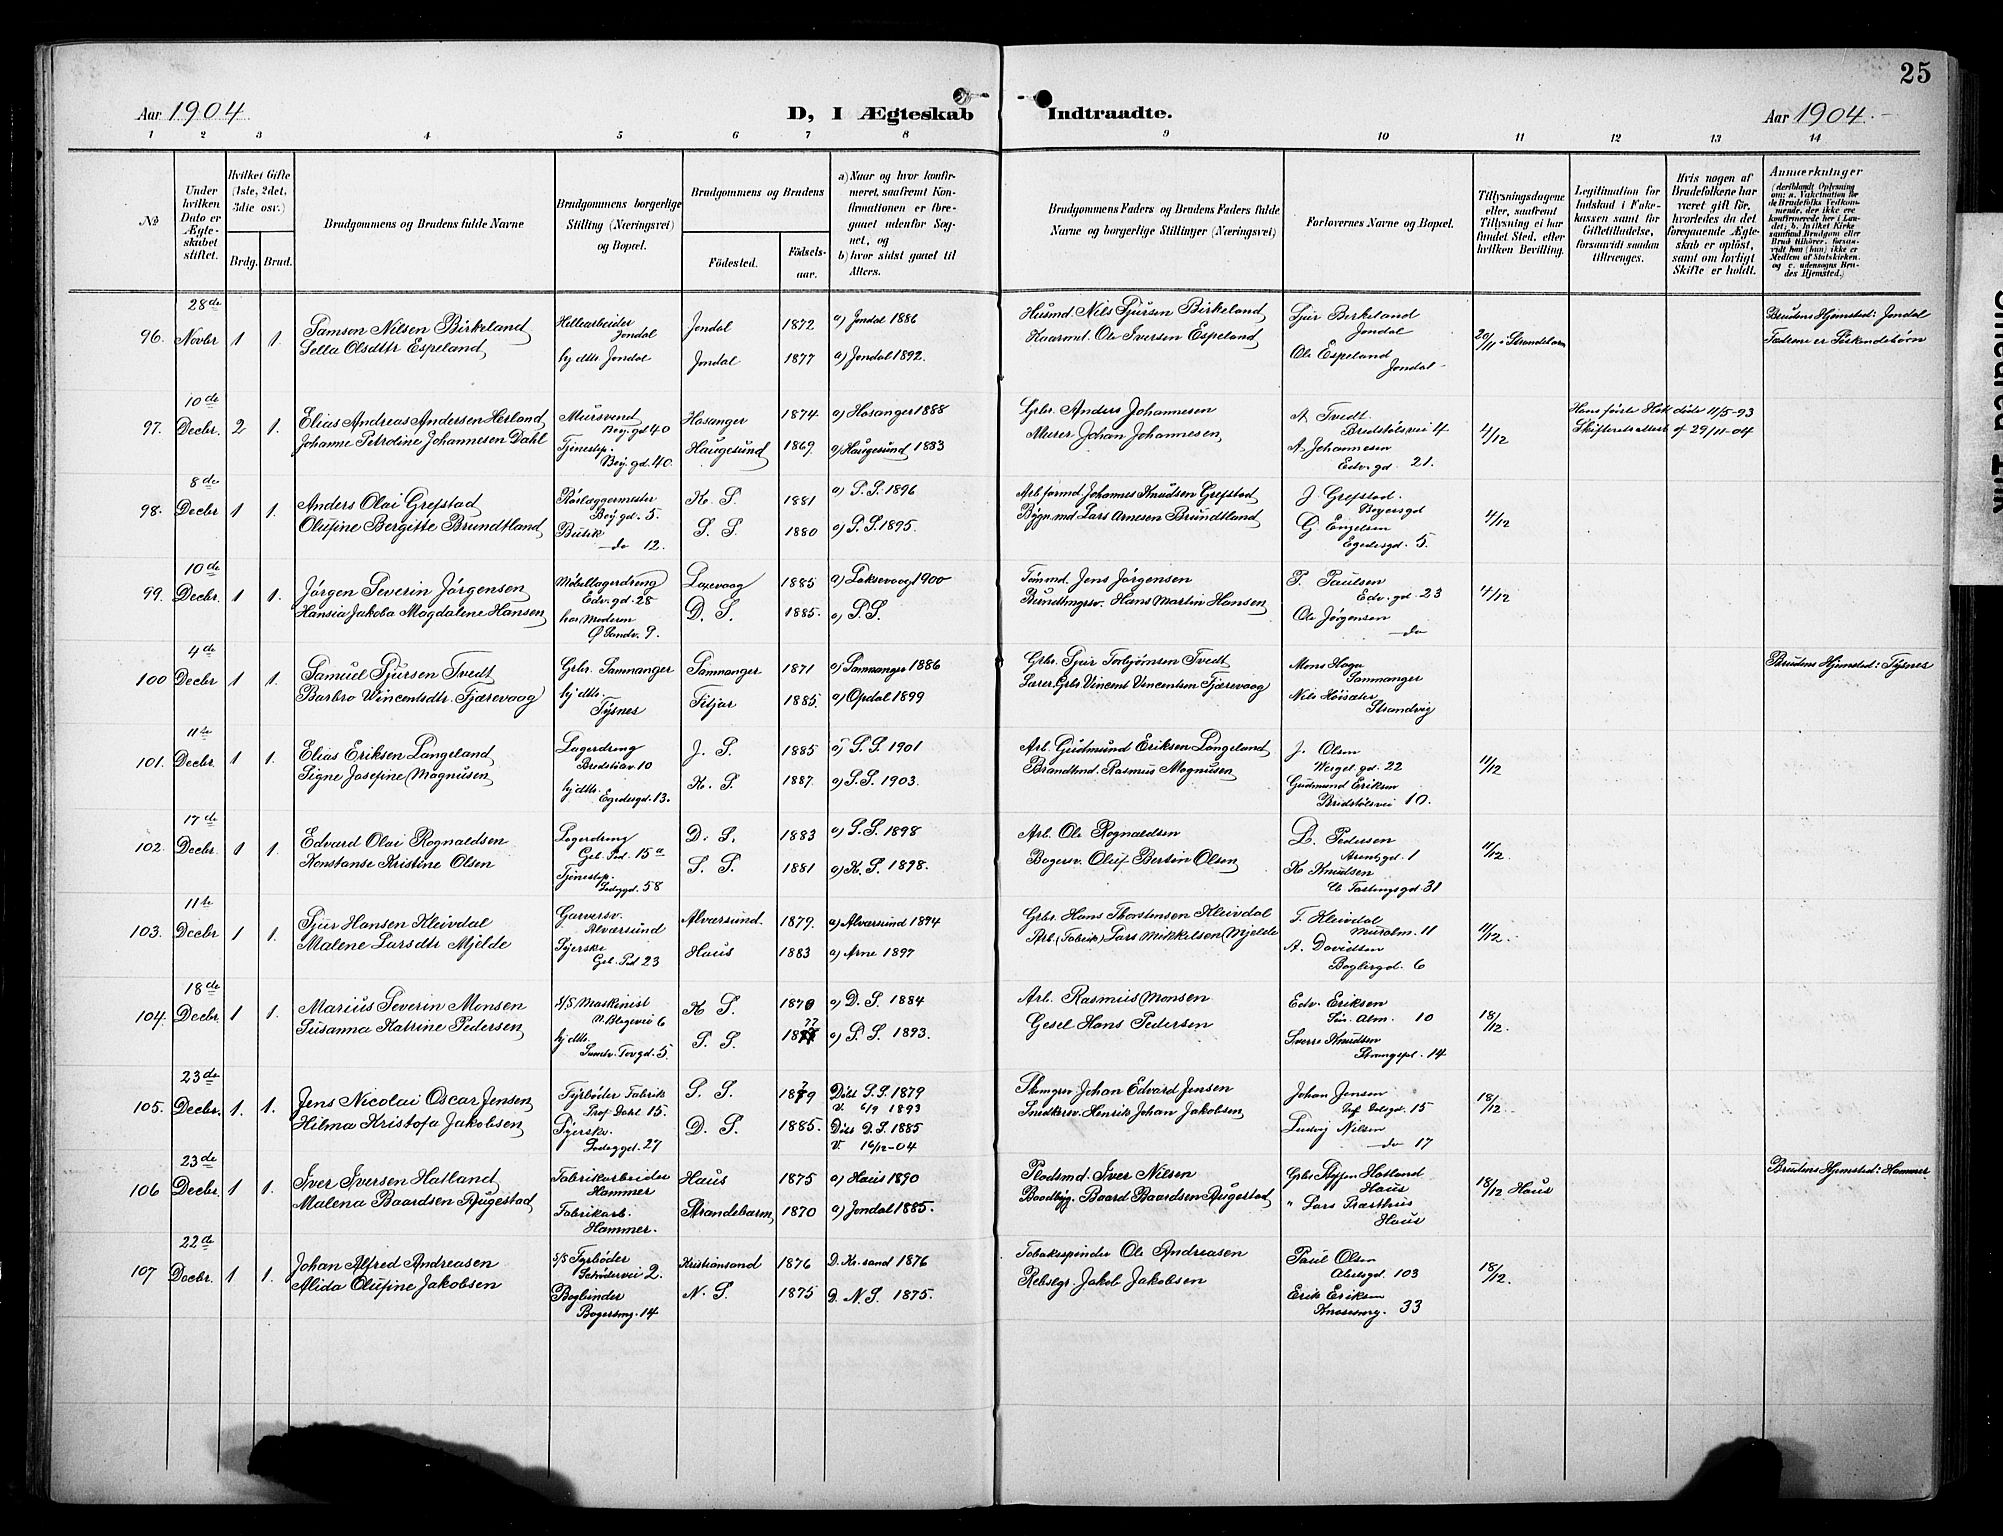 25
Aar 1904
D, I Ægteskab Indtraadte.
Aar 1904.
1 2 3 4 5 6 7 8 9 10 11 12 13 14
No
Under hvilken Dato er Ægteskabet stiftet.
Hvilket Gifte (1ste, 2det, 3die osv.)
Brdg. Brud.
Brudgommens og Brudens fulde Navne
Brudgommens borgerlige Stilling (Næringsvei) og Bopæl.
Brudgommens og Brudens
Fødested.
Fødselsaar.
a) Naar og hvor konfirmeret, saafremt Konfirmationen er foregaaet udenfor Sognet, og
b) hvor sidst gaaet til Alters.
Brudgommens Faders og Brudens Faders fulde Navne og borgerlige Stillinger (Næringsvei)
Forlovernes Navne og Bopæl.
Tillysningsdagene eller, saafremt Tillysning ei har fundet Sted, efter hvilken Bevilling.
Legitimation for Indskud i Enkekassen samt for Giftetilladelse, forsaavidt saadan tiltrænges.
Hvis nogen af Brudefolkene har været gift før, hvorledes da det foregaaende Ægteskab er opløst, samt om lovligt Skifte er holdt.
Anmærkninger
(deriblandt Oplysning om: a. Vakcination for de Brudefolks Vedkommende, der ikke ere konfirmerede her i Landet; b. hvilket Kirkesamfund Brudgom eller Brud tilhører, forsaavidt han (hun) ikke er Medlem af Statskirken, og c. udensogns Brudes Hjemsted.)
96. 28de Novbr 1 1. Samson Nilsen Birkeland Hellearbeider Jondal Jondal 1872 a) Jondal 1886 Husmd Nils Sjursen Birkeland Sjur Birkeland Jondal 20/11 i Strandebarm Brudens Hjemsted: Jondal
Sella Olsdttr Espeland hj dttr. Jondal Jondal 1877 a) Jondal 1892. Kaarmd. Ole Iversen Espeland Ole Espeland Jondal Fædrene er Söskendebörn
97. 10de Decbr. 2 1. Elias Andreas Andersen Herland Mursvend Bøy. gd 40 Hosanger 1874. a) Hosanger 1888 Grbr. Anders Johannesen A. Tvedt. Bredstölsvei 4 4/12 Hans første Hok døde 11/5-93
Johanne Petroline Johannesen Dahl Tjenestep. Bøy. gd. 40. Haugesund 1869. a) Haugesund 1883 Murer Johan Johannesen A. Johannesen Edv. gd 21. Skifteretsattest af 29/11-04
98. 8de Decbr 1 1. Anders Olai Grefstad Rörlæggermester Bøy gd. 5. K. S. 1881 a) S. S. 1896 Arb. formd. Johannes Knudsen Grefstad J. Grefstad. Bøyersgd 4/12
Olufine Bergitte Brundtland Butik do 12. S. S. 1880 a) S. S. 1895. Bygn. md Lars Arnesen Brundtland G. Engelsen Egedesgd. 5.
99. 10de Decbr. 1 1. Jörgen Severin Jörgensen Möbellagerdreng Edv. gd. 28 Laxevaag 1885 a) Laksevaag 1900 Tömmd. Jens Jörgensen P. Paulsen Edv. gd. 23 4/12
Hansia Jakoba Magdalene Hansen hos Moderen Ø Sandv. 9. D. S. 1885. a) S. S. Hans Martin Hansen Ole Jörgensen do
100 4de Decbr 1 1. Samuel Sjursen Tvedt Grbr. Samnanger Samnanger 1871 a) Samnanger 1886 Grbr. Sjur Torbjörnsen Tvedt Mons Haga Samnanger Brudens Hjemsted: Tysnes
Barbro Vincentsdtr. Tjærevaag hj dttr. Tysnes Fitjar 1885. a) Opdal 1899 Lærer, Grbr Vincent Vincentsen Tjærevaag Nils Höisæter Strandvig
101. 11te Decbr. 1 1. Elias Eriksen Langeland Lagerdreng Bredstölsv. 10 J. S. 1885 a) S. S. 1901 Arb. Gudmund Eriksen Langeland J. Olsen Werget. gd. 22 11/12
Signe Josefine Magnusen hj dttr. Egedesgd. 13. K. S. 1887. a) S. S. 1903. Brandkmd. Rasmus Magnusen Gudmund Eriksen Bredstölsvei 10.
102. 17de Decbr. 1 1. Edvard Olai Rognaldsen Lagerdreng Geb. Ped. 15a D. S. 1883 a) S. S. 1898 Arb. Ole Rognaldsen L. Pedersen Arentzgd. 1 11/12.
Konstanse Kristine Olsen Tjenestep. 58 S. S. 1881 a) K. S. 1898. Bagersv. Oluf Bertin Olsen K. Knudsen C. Fastingsgd. 31
103. 11te Decbr 1 1. Sjur Hansen Kleivdal Garversv. Alværsund Alværsund. 1879. a) Alværsund 1894 Grbr. Hans Thorstensen Kleivdal T. Kleivdal Muralm. 11 11/12.
Malene Larsdtr Mjelde Syerske Geb. Ped 23 Haus 1883 a) Arne 1897 Arb. (Fabrik) Lars Mikkelsen Mjelde A. Davidsen Baglergd. 6
104. 18de Decbr 1 1. Marius Severin Monsen S/S Maskinist N. Blegevei 6 K S. 1870 a) D. S. 1884 Arb. Rasmus Monsen Edv. Eriksen Sus. Alm. 10 18/12.
Susanna Katrine Pedersen hj dttr. Sandv. Torvgd. 5. S. S. 1877 a) S. S. 1893. Gesel Hans Pedersen Sverre Knudsen Strangepl. 14
105. 23de Decbr. 1. 1. Jens Nicolai Oscar Jensen Fyrböder Fabrik Prof. Dahl. 15. S. S. 1879 Döbt S. S. 1879 V. 6/9 1893 Johan Edvard Jensen Johan Jensen Prof. Dalsgd. 15 18/12
Helma Kristofa Jakobsen Syerske. 27 D. S. 1885. Döbt D. S. 1885 V. 16/12-04 Snedkersv. Henrik Johan Jakobsen Ludvig Nilsen do 17
106 23de Decbr. 1 1. Iver Iversen Hatland Fabrikarbeider Hammer Haus 1875 a) Haus 1890 Pladsmd. Iver Nilsen Grbr. Steffen Hatland Haus 18/12 Haus Brudens Hjemsted: Hammer
Malena Baardsen Augestad Fabrikarb. Hammer. Strandebarm 1870 a) Jondal 1885. Baadbyg. Baard Baardsen Augestad " Lars Præsthus Haus
107 22de Decbr. 1 1. Johan Alfred Andreasen S/S Fyrböder 2. Kristiansand 1876 D. Kr. sand 1876 Tobaksspinder Ole Andreasen Paul Olsen Absalsgd. 103 18/12.
Alida Olufine Jakobsen Bogbinder Bagersmg. 14 N. S. 1875 D. N. S. 1875. Rebslgr. Jakob Jakobsen Erik Eriksen Knøsesmg. 33